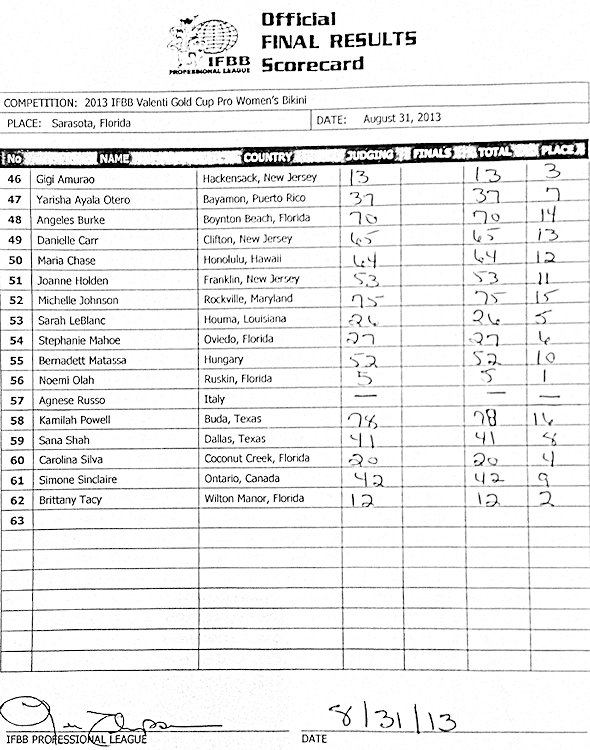 Official
FINAL RESULTS
Scorecard
IFBB
PROFESSIONAL LEAGUE
COMPETITION: 2013 IFBB Valenti Gold Cup Pro Women's Bikini
PLACE: Sarasota, Florida DATE: August 31, 2013
No NAME COUNTRY JUDGING FINALS TOTAL PLACE
46 Gigi Amurao Hackensack, New Jersey 13 13 3
47 Yarisha Ayala Otero Bayamon, Puerto Rico 37 37 7
48 Angeles Burke Boynton Beach, Florida 70 70 14
49 Danielle Carr Clifton, New Jersey 65 65 13
50 Maria Chase Honolulu, Hawaii 64 64 12
51 Joanne Holden Franklin, New Jersey 53 53 11
52 Michelle Johnson Rockville, Maryland 75 75 15
53 Sarah LeBlanc Houma, Louisiana 26 26 5
54 Stephanie Mahoe Oviedo, Florida 27 27 6
55 Bernadett Matassa Hungary 52 52 10
56 Noemi Olah Ruskin, Florida 5 5 1
57 Agnese Russo Italy — — —
58 Kamilah Powell Buda, Texas 78 78 16
59 Sana Shah Dallas, Texas 41 41 8
60 Carolina Silva Coconut Creek, Florida 20 20 4
61 Simone Sinclaire Ontario, Canada 42 42 9
62 Brittany Tacy Wilton Manor, Florida 12 12 2
63
8/31/13
IFBB PROFESSIONAL LEAGUE DATE